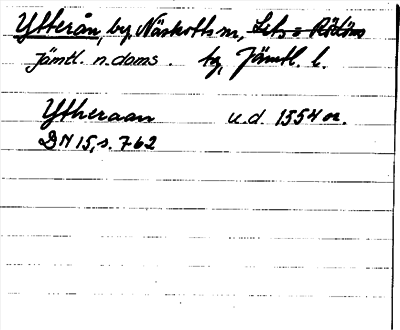 Ytterån, by, Näskotts sn, Sets o Rödöns
Jämtl. n. doms. tg, Jämtl. l.
Ytheraan u.d. 1554 or.
DN 15, s. 762